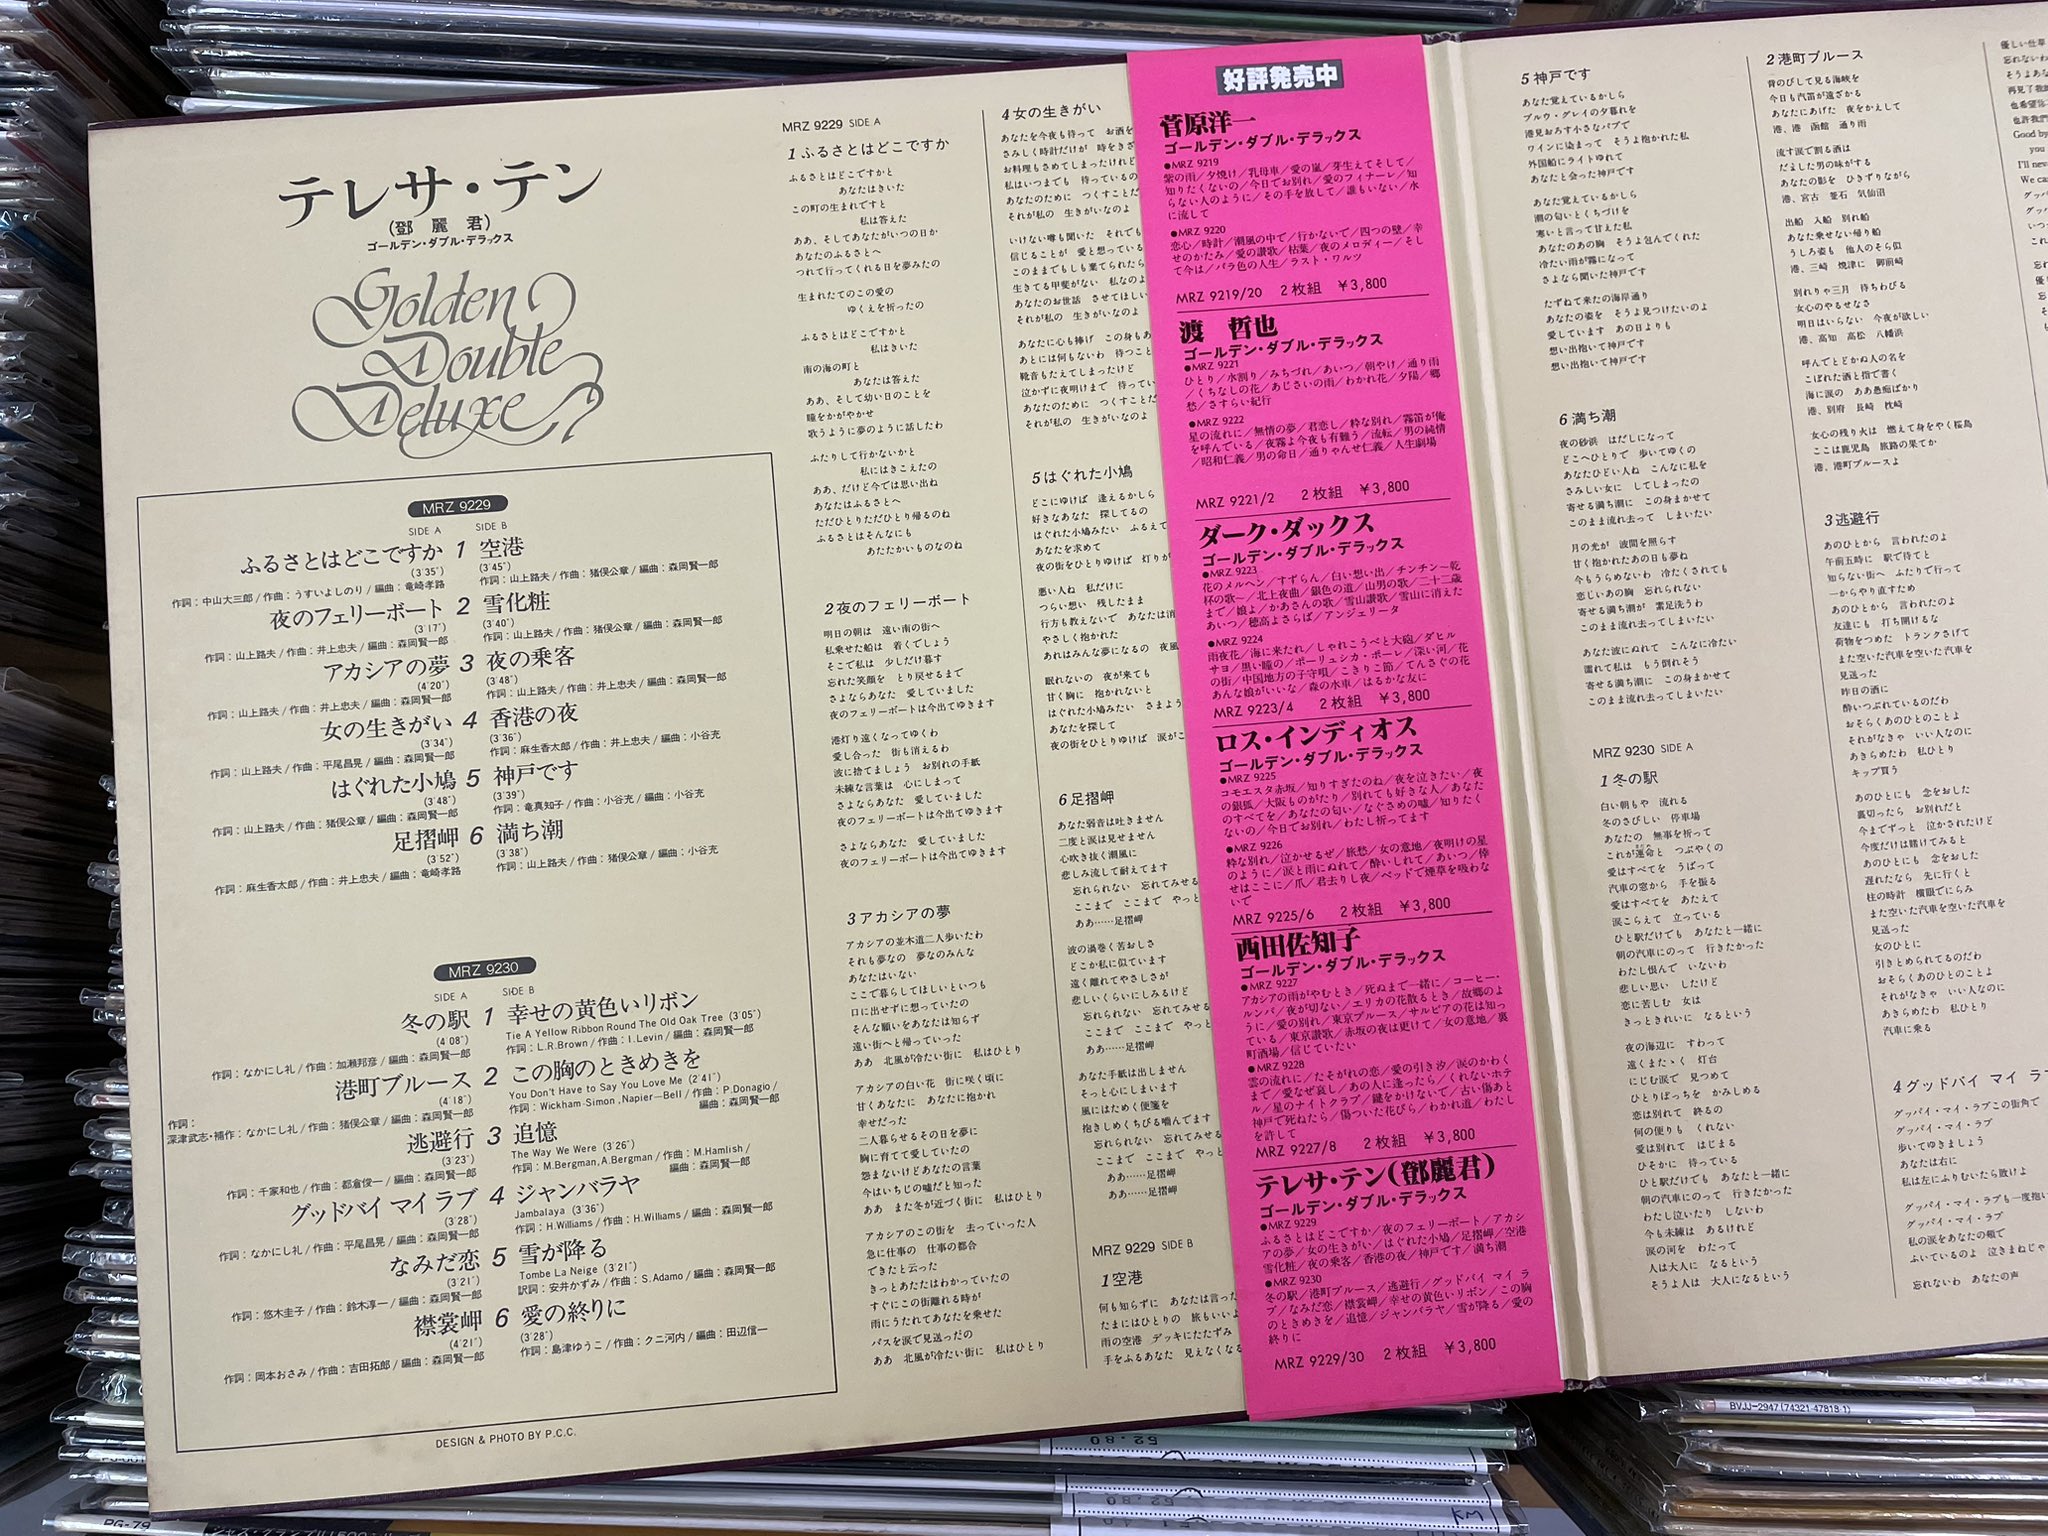 テレサ・テン
(鄧麗君)
ゴールデン・ダブル・デラックス
Golden
Double
Deluxe
MRZ 9229
SIDE A SIDE B
ふるさとはどこですか 1 空港
(3'35") (3'45")
作詞：中山大三郎/作曲：うすいよしのり/編曲：竜崎孝路 作詞：山上路夫/作曲：猪俣公章/編曲：森岡賢一郎
夜のフェリーボート 2 雪化粧
(3'17") (3'40")
作詞：山上路夫/作曲：井上忠夫/編曲：森岡賢一郎 作詞：山上路夫/作曲：猪俣公章/編曲：森岡賢一郎
アカシアの夢 3 夜の乗客
(4'20") (3'48")
作詞：山上路夫/作曲：井上忠夫/編曲：森岡賢一郎 作詞：山上路夫/作曲：井上忠夫/編曲：森岡賢一郎
女の生きがい 4 香港の夜
(3'34") (3'36")
作詞：山上路夫/作曲：平尾昌晃/編曲：森岡賢一郎 作詞：麻生香太郎/作曲：井上忠夫/編曲：小谷充
はぐれた小鳩 5 神戸です
(3'48") (3'39")
作詞：山上路夫/作曲：猪俣公章/編曲：森岡賢一郎 作詞：竜真知子/作曲：小谷充/編曲：小谷充
足摺岬 6 満ち潮
(3'52") (3'38")
作詞：麻生香太郎/作曲：井上忠夫/編曲：竜崎孝路 作詞：山上路夫/作曲：猪俣公章/編曲：小谷充
MRZ 9230
SIDE A SIDE B
冬の駅 1 幸せの黄色いリボン
(4'08") Tie A Yellow Ribbon Round The Old Oak Tree (3'05")
作詞：なかにし礼/作曲：加瀬邦彦/編曲：森岡賢一郎 作詞：L.R.Brown/作曲：I.Levin/編曲：森岡賢一郎
港町ブルース 2 この胸のときめきを
(4'18") You Don't Have to Say You Love Me (2'41")
作詞：深津武志・補作：なかにし礼/作曲：猪俣公章/編曲：森岡賢一郎 作詞：Wickham-Simon, Napier-Bell/作曲：P.Donagio/編曲：森岡賢一郎
逃避行 3 追憶
(3'23") The Way We Were (3'26")
作詞：千家和也/作曲：都倉俊一/編曲：森岡賢一郎 作詞：M.Bergman, A.Bergman/作曲：M.Hamlish/編曲：森岡賢一郎
グッドバイ マイ ラブ 4 ジャンバラヤ
(3'28") Jambalaya (3'36")
作詞：なかにし礼/作曲：平尾昌晃/編曲：森岡賢一郎 作詞：H.Williams/作曲：H.Williams/編曲：森岡賢一郎
なみだ恋 5 雪が降る
(3'21") Tombe La Neige (3'21")
作詞：悠木圭子/作曲：鈴木淳一/編曲：森岡賢一郎 訳詞：安井かずみ/作曲：S.Adamo/編曲：森岡賢一郎
襟裳岬 6 愛の終りに
(4'21") (3'28")
作詞：岡本おさみ/作曲：吉田拓郎/編曲：森岡賢一郎 作詞：島津ゆうこ/作曲：クニ河内/編曲：田辺信一
DESIGN & PHOTO BY P.C.C.
MRZ 9229 SIDE A
1 ふるさとはどこですか
ふるさとはどこですかと
あなたはきいた
この町の生まれですと
私は答えた
ああ、そしてあなたがいつの日か
あなたのふるさとへ
つれて行ってくれる日を夢みたの
生まれたてのこの愛の
ゆくえを祈ったの
ふるさとはどこですかと
私はきいた
南の海の町と
あなたは答えた
ああ、そして幼い日のことを
瞳をかがやかせ
歌うように夢のように話したわ
ふたりして行かないかと
私にはきこえたの
ああ、だけど今では思い出ね
あなたはふるさとへ
ただひとりただひとり帰るのね
ふるさとはそんなにも
あたたかいものなのね
2 夜のフェリーボート
明日の朝は 遠い南の街へ
私乗せた船は 着くでしょう
そこで私は 少しだけ暮す
忘れた笑顔を とり戻せるまで
さよならあなた 愛していました
夜のフェリーボートは今出てゆきます
港灯り遠くなってゆくわ
愛し合った 街も消えるわ
波に捨てましょう お別れの手紙
未練な言葉は 心にしまって
さよならあなた 愛していました
夜のフェリーボートは今出てゆきます
さよならあなた 愛していました
夜のフェリーボートは今出てゆきます
3 アカシアの夢
アカシアの並木道二人歩いたわ
それも夢なの 夢なのみんな
あなたはいない
ここで暮らしてほしいといつも
口に出せずに想っていたの
そんな願いをあなたは知らず
遠い街へと帰っていった
ああ 北風が冷たい街に 私はひとり
アカシアの白い花 街に咲く頃に
甘くあなたに あなたに抱かれ
幸せだった
二人暮らせるその日を夢に
胸に育てて愛していたの
怨まないけどあなたの言葉
今はいちじの嘘だと知った
ああ また冬が近づく街に 私はひとり
アカシアのこの街を 去っていった人
急に仕事の 仕事の都合
できたと云った
きっとあたたはわかっていたの
すぐにこの街離れる時が
雨にうたれてあなたを乗せた
バスを涙で見送ったの
ああ 北風が冷たい街に 私はひとり
4 女の生きがい
あなたを今夜も待って お酒を
さみしく時計だけが 時をきざ
お料理もさめてしまったけれど
私はいつまでも 待っているの
あなたのために つくすことだ
それが私の 生きがいなのよ
いけない噂も聞いた それでも
信じることが 愛と想っている
このままでもしも棄てられたら
生きてる甲斐がない 私なのよ
あなたのお世話 させてほしい
それが私の 生きがいなのよ
あなたに心も捧げ この身もあ
あとには何もないわ 待つこと
靴音もたえてしまったけど
泣かずに夜明けまで 待ってい
あなたのために つくすことだ
それが私の 生きがいなのよ
5 はぐれた小鳩
どこにゆけば 逢えるかしら
好きなあなた 探してるの
はぐれた小鳩みたい ふるえて
あなたを求めて
夜の街をひとりゆけば 灯りが
悪い人ね 私だけに
つらい想い 残したまま
行方も教えないで あなたは消
やさしく抱かれた
あれはみんな夢になるの 夜風
眠れないの 夜が来ても
甘く胸に 抱かれないと
はぐれた小鳩みたい さまよう
あなたを探して
夜の街をひとりゆけば 涙がこ
6 足摺岬
あなた弱音は吐きません
二度と涙は見せません
心吹き抜く潮風に
悲しみ流して耐えてます
忘れられない 忘れてみせる
ここまで ここまで やっと
ああ……足摺岬
波の渦巻く苦おしさ
どこか私に似ています
遠く離れてやさしさが
悲しいくらいにしみるけど
忘れられない 忘れてみせる
ここまで ここまで やっと
ああ……足摺岬
あなた手紙は出しません
そっと心にしまいます
風にはためく便箋を
抱きしめくちびる噛んでます
忘れられない 忘れてみせる
ここまで ここまで やっと
ああ……足摺岬
ああ……足摺岬
MRZ 9229 SIDE B
1 空港
何も知らずに あなたは言った
たまにはひとりの 旅もいいよ
雨の空港 デッキにたたずみ
手をふるあなた 見えなくなる
好評発売中
菅原洋一
ゴールデン・ダブル・デラックス
●MRZ 9219
紫の雨/夕焼け/乳母車/愛の嵐/芽生えてそして/
知りたくないの/今日でお別れ/愛のフィナーレ/知
らない人のように/その手を放して/誰もいない/水
に流して
●MRZ 9220
恋心/時計/潮風の中で/行かないで/四つの壁/幸
せのかたみ/愛の讃歌/枯葉/夜のメロディー/そし
て今は/バラ色の人生/ラスト・ワルツ
MRZ 9219/20 2枚組 ¥3,800
渡 哲也
ゴールデン・ダブル・デラックス
●MRZ 9221
ひとり/水割り/みちづれ/あいつ/朝やけ/通り雨
/くちなしの花/あじさいの雨/わかれ花/夕陽/郷
愁/さすらい紀行
●MRZ 9222
星の流れに/無情の夢/君恋し/粋な別れ/霧笛が俺
を呼んでいる/夜霧よ今夜も有難う/流転/男の純情
/昭和仁義/男の命日/通りゃんせ仁義/人生劇場
MRZ 9221/2 2枚組 ¥3,800
ダーク・ダックス
ゴールデン・ダブル・デラックス
●MRZ 9223
花のメルヘン/すずらん/白い想い出/チンチン〜乾
杯の歌〜/北上夜曲/銀色の道/山男の歌/二十二歳
まで/娘よ/かあさんの歌/雪山讃歌/雪山に消えた
あいつ/穂高よさらば/アンジェリータ
●MRZ 9224
雨夜花/海に来たれ/しゃれこうべと大砲/ダヒル
サヨ/黒い瞳の/ポーリュシカ・ポーレ/深い河/花
の街/中国地方の子守唄/こきりこ節/てんさぐの花
あんな娘がいいな/森の水車/はるかな友に
MRZ 9223/4 2枚組 ¥3,800
ロス・インディオス
ゴールデン・ダブル・デラックス
●MRZ 9225
コモエスタ赤坂/知りすぎたのね/夜を泣きたい/夜
の銀狐/大阪ものがたり/別れても好きな人/あなた
のすべてを/あなたの匂い/なぐさめの嘘/知りたく
ないの/今日でお別れ/わたし祈ってます
●MRZ 9226
粋な別れ/泣かせるぜ/旅愁/女の意地/夜明けの星
のように/涙と雨にぬれて/酔いしれて/あいつ/倖
せはここに/爪/君去りし夜/ベッドで煙草を吸わな
いで
MRZ 9225/6 2枚組 ¥3,800
西田佐知子
ゴールデン・ダブル・デラックス
●MRZ 9227
アカシアの雨がやむとき/死ぬまで一緒に/コーヒー・
ルンバ/夜が切ない/エリカの花散るとき/故郷のよ
うに/愛の別れ/東京ブルース/サルビアの花は知っ
ている/東京讃歌/赤坂の夜は更けて/女の意地/裏
町酒場/信じていたい
●MRZ 9228
雲の流れに/たそがれの恋/愛の引き汐/涙のかわく
まで/愛なぜ哀し/あの人に逢ったら/くれないホテ
ル/星のナイトクラブ/鍵をかけないで/古い傷あと
神戸で死ねたら/傷ついた花びら/わかれ道/わたし
を許して
MRZ 9227/8 2枚組 ¥3,800
テレサ・テン(鄧麗君)
ゴールデン・ダブル・デラックス
●MRZ 9229
ふるさとはどこですか/夜のフェリーボート/アカシ
アの夢/女の生きがい/はぐれた小鳩/足摺岬/空港
雪化粧/夜の乗客/香港の夜/神戸です/満ち潮
●MRZ 9230
冬の駅/港町ブルース/逃避行/グッドバイ マイ ラ
ブ/なみだ恋/襟裳岬/幸せの黄色いリボン/この胸
のときめきを/追憶/ジャンバラヤ/雪が降る/愛の
終りに
MRZ 9229/30 2枚組 ¥3,800
5 神戸です
あなた覚えているかしら
ブルウ・グレイの夕暮れを
港見おろす小さなパブで
ワインに染まって そうよ抱かれた私
外国船にライトゆれて
あなたと会った神戸です
あなた覚えているかしら
潮の匂いとくちづけを
寒いと言って甘えた私
あなたのあの胸 そうよ包んでくれた
冷たい雨が霧になって
さよなら聞いた神戸です
たずねて来たの海岸通り
あなたの姿を そうよ見つけたいのよ
愛しています あの日よりも
想い出抱いて神戸です
想い出抱いて神戸です
6 満ち潮
夜の砂浜 はだしになって
どこへひとりで 歩いてゆくの
あなたひどい人ね こんなに私を
さみしい女に してしまったの
寄せる満ち潮に この身まかせて
このまま流れ去って しまいたい
月の光が 波間を照らす
甘く抱かれたあの日も夢ね
今もうらめないわ 冷たくされても
恋しいあの胸 忘れられない
寄せる満ち潮が 素足洗うわ
このまま流れ去ってしまいたい
あなた波にぬれて こんなに冷たい
濡れて私は もう倒れそう
寄せる満ち潮に この身まかせて
このまま流れ去ってしまいたい
MRZ 9230 SIDE A
1 冬の駅
白い朝もや 流れる
冬のさびしい 停車場
あなたの 無事を祈って
これが運命と つぶやくの
愛はすべてを うばって
汽車の窓から 手を振る
愛はすべてを あたえて
涙こらえて 立っている
ひと駅だけでも あなたと一緒に
朝の汽車にのって 行きたかった
わたし恨んで いないわ
悲しい思い したけど
恋に苦しむ 女は
きっときれいに なるという
夜の海辺に すわって
遠くまたゝく 灯台
にじむ涙で 見つめて
ひとりぼっちを かみしめる
恋は別れて 終るの
何の便りも くれない
愛は別れて はじまる
ひそかに 待っている
ひと駅だけでも あなたと一緒に
朝の汽車にのって 行きたかった
わたし泣いたり しないわ
今も未練は あるけれど
涙の河を わたって
人は大人に なるという
そうよ人は 大人になるという
2 港町ブルース
背のびして見る海峡を
今日も汽笛が遠ざかる
あなたにあげた 夜をかえして
港、港 函館 通り雨
流す涙で割る酒は
だました男の味がする
あなたの影を ひきずりながら
港、宮古 釜石 気仙沼
出船 入船 別れ船
あなた乗せない帰り船
うしろ姿も 他人のそら似
港、三崎 焼津に 御前崎
別れりゃ三月 待ちわびる
女心のやるせなさ
明日はいらない 今夜が欲しい
港、高知 高松 八幡浜
呼んでとどかぬ人の名を
こぼれた酒と指で書く
海に涙の ああ愚痴ばかり
港、別府 長崎 枕崎
女心の残り火は 燃えて身をやく桜島
ここは鹿児島 旅路の果てか
港、港町ブルースよ
3 逃避行
あのひとから 言われたのよ
午前五時に 駅で待てと
知らない街へ ふたりで行って
一からやり直すため
あのひとから 言われたのよ
友達にも 打ち開けるな
荷物をつめた トランクさげて
また空いた汽車を空いた汽車を
見送った
昨日の酒に
酔いつぶれているのだわ
おそらくあのひとのことよ
それがなきゃ いい人なのに
あきらめたわ 私ひとり
キップ買う
あのひとにも 念をおした
裏切ったら お別れだと
今までずっと 泣かされたけど
今度だけは賭けてみると
あのひとにも 念をおした
遅れたなら 先に行くと
柱の時計 横眼でにらみ
また空いた汽車を空いた汽車を
見送った
女のひとに
引きとめられてるのだわ
おそらくあのひとのことよ
それがなきゃ いい人なのに
あきらめたわ 私ひとり
汽車に乗る
4 グッドバイ マイ ラブ
グッバイ・マイ・ラブこの街角で
グッバイ・マイ・ラブ
歩いてゆきましょう
あなたは右に
私は左にふりむいたら敗けよ
グッバイ・マイ・ラブも一度抱い
グッバイ・マイ・ラブ
私の涙をあなたの頬で
ふいているのよ 泣きまねじゃ
忘れないわ あなたの声
優しい仕草
忘れないわ
そうよあな
也希望
Good by
you
I'll neve
We ca
BVJJ-2947 (74321-47818-1)
52.80
KM
PG-79